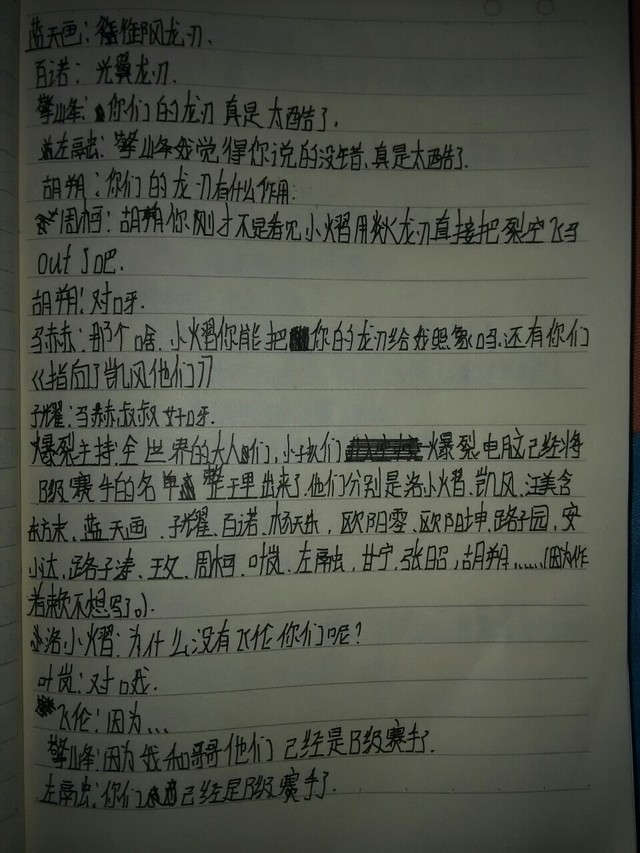 蓝天画：御风龙刃、
百诺：光翼龙刃.
擎峰：你们的龙刃真是太酷了.
左扁虫：擎峰我觉得你说的没错，真是太酷了.
胡朔：你们的龙刃有什么作用.
周柯：胡朔你刚才不是看见小熠用炎火龙刃直接把裂空飞马
out了吧.
胡朔：对呀.
马赫赫：那个啥.小熠你能把你的龙刃给我照象吗.还有你们
《指向了凯风他们》
子耀：马赫叔叔好呀.
爆裂主持：全世界的大人们，小孩们爆裂电脑已经将
B级赛手的名单整理出来了.他们分别是洛小熠.凯风.江美含
东方末，蓝天画.子耀.百诺.杨天乐，欧阳零.欧阳坤.路子园，安
小达.路子涛.王攵.周柯.叶岚.左扁虫，甘宁.张昭，胡朔……（因为作
者懒不想写了。）.
洛小熠：为什么没有飞伦你们呢？
叶岚：对哦.
飞伦：因为...
擎峰：因为我和哥哥他们已经是B级赛手了.
左扁虫：你们已经是B级赛手了.